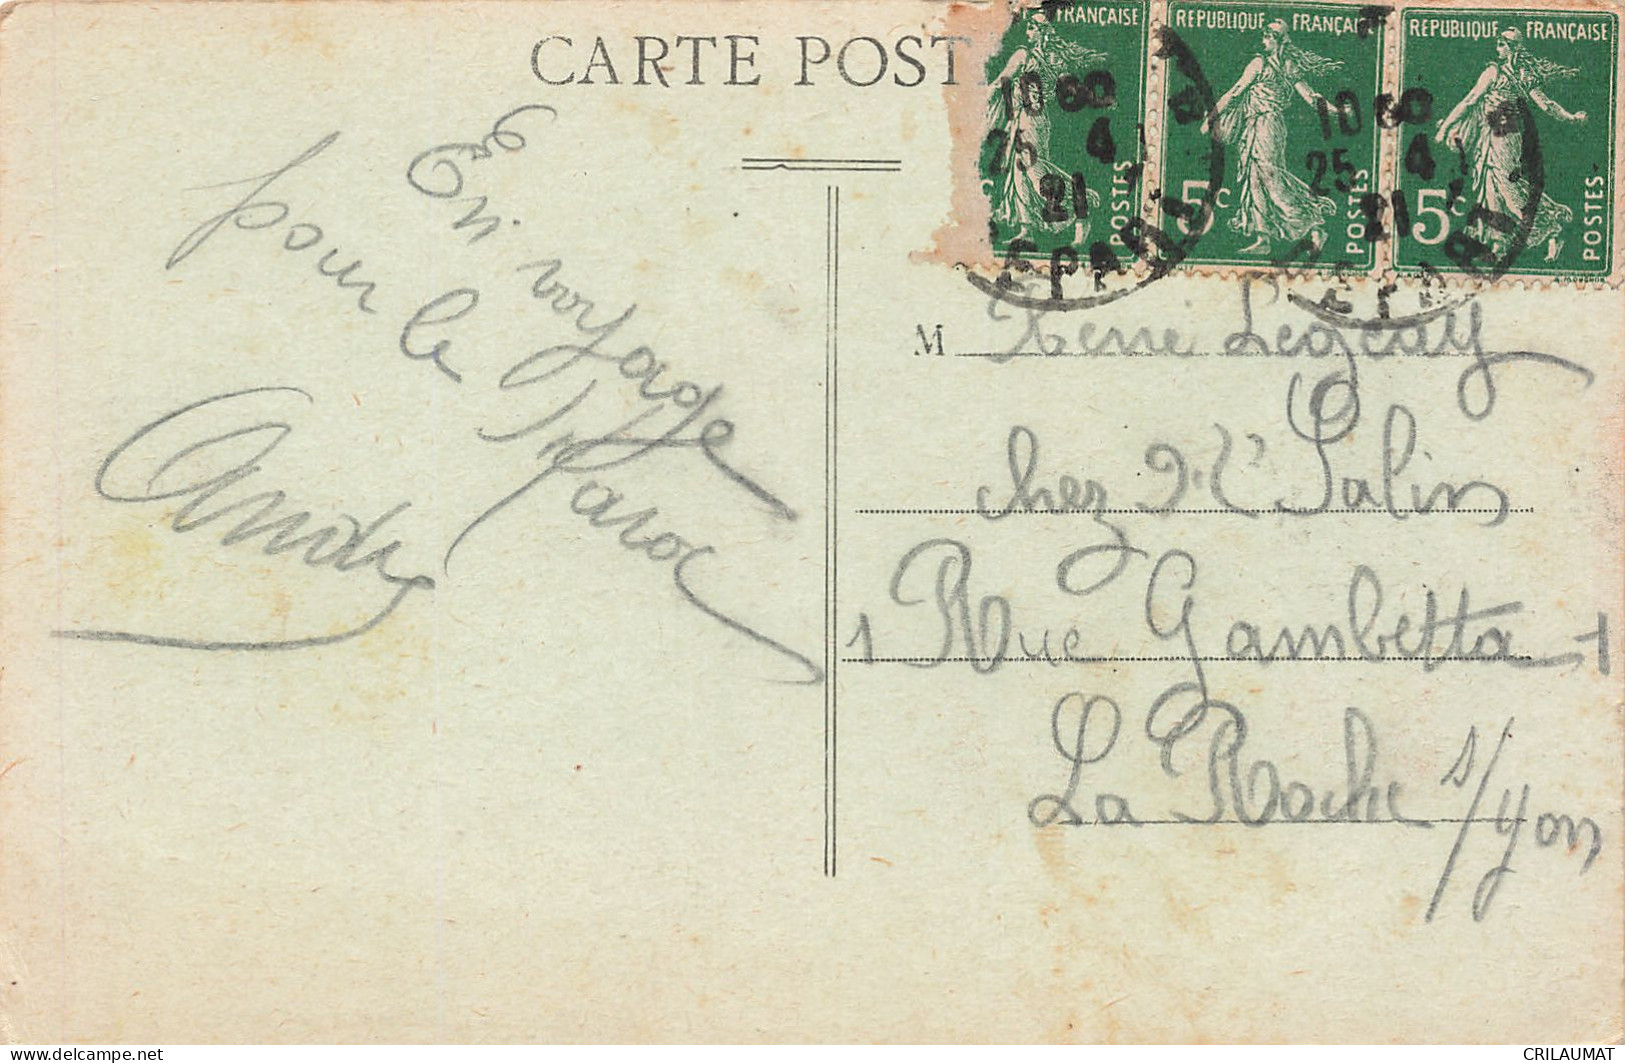 CARTE POST
FRANÇAISE
REPUBLIQUE FRANÇAISE
REPUBLIQUE FRANÇAISE
10
25 4
21
POSTES
5c
10
25 4
21
POSTES
5c
POSTES
En voyage
pour le Maroc
André
M René Legeay
chez Mr Salin
1 Rue Gambetta - 1
La Roche s/yon
delcampe.net
CRILAUMAT